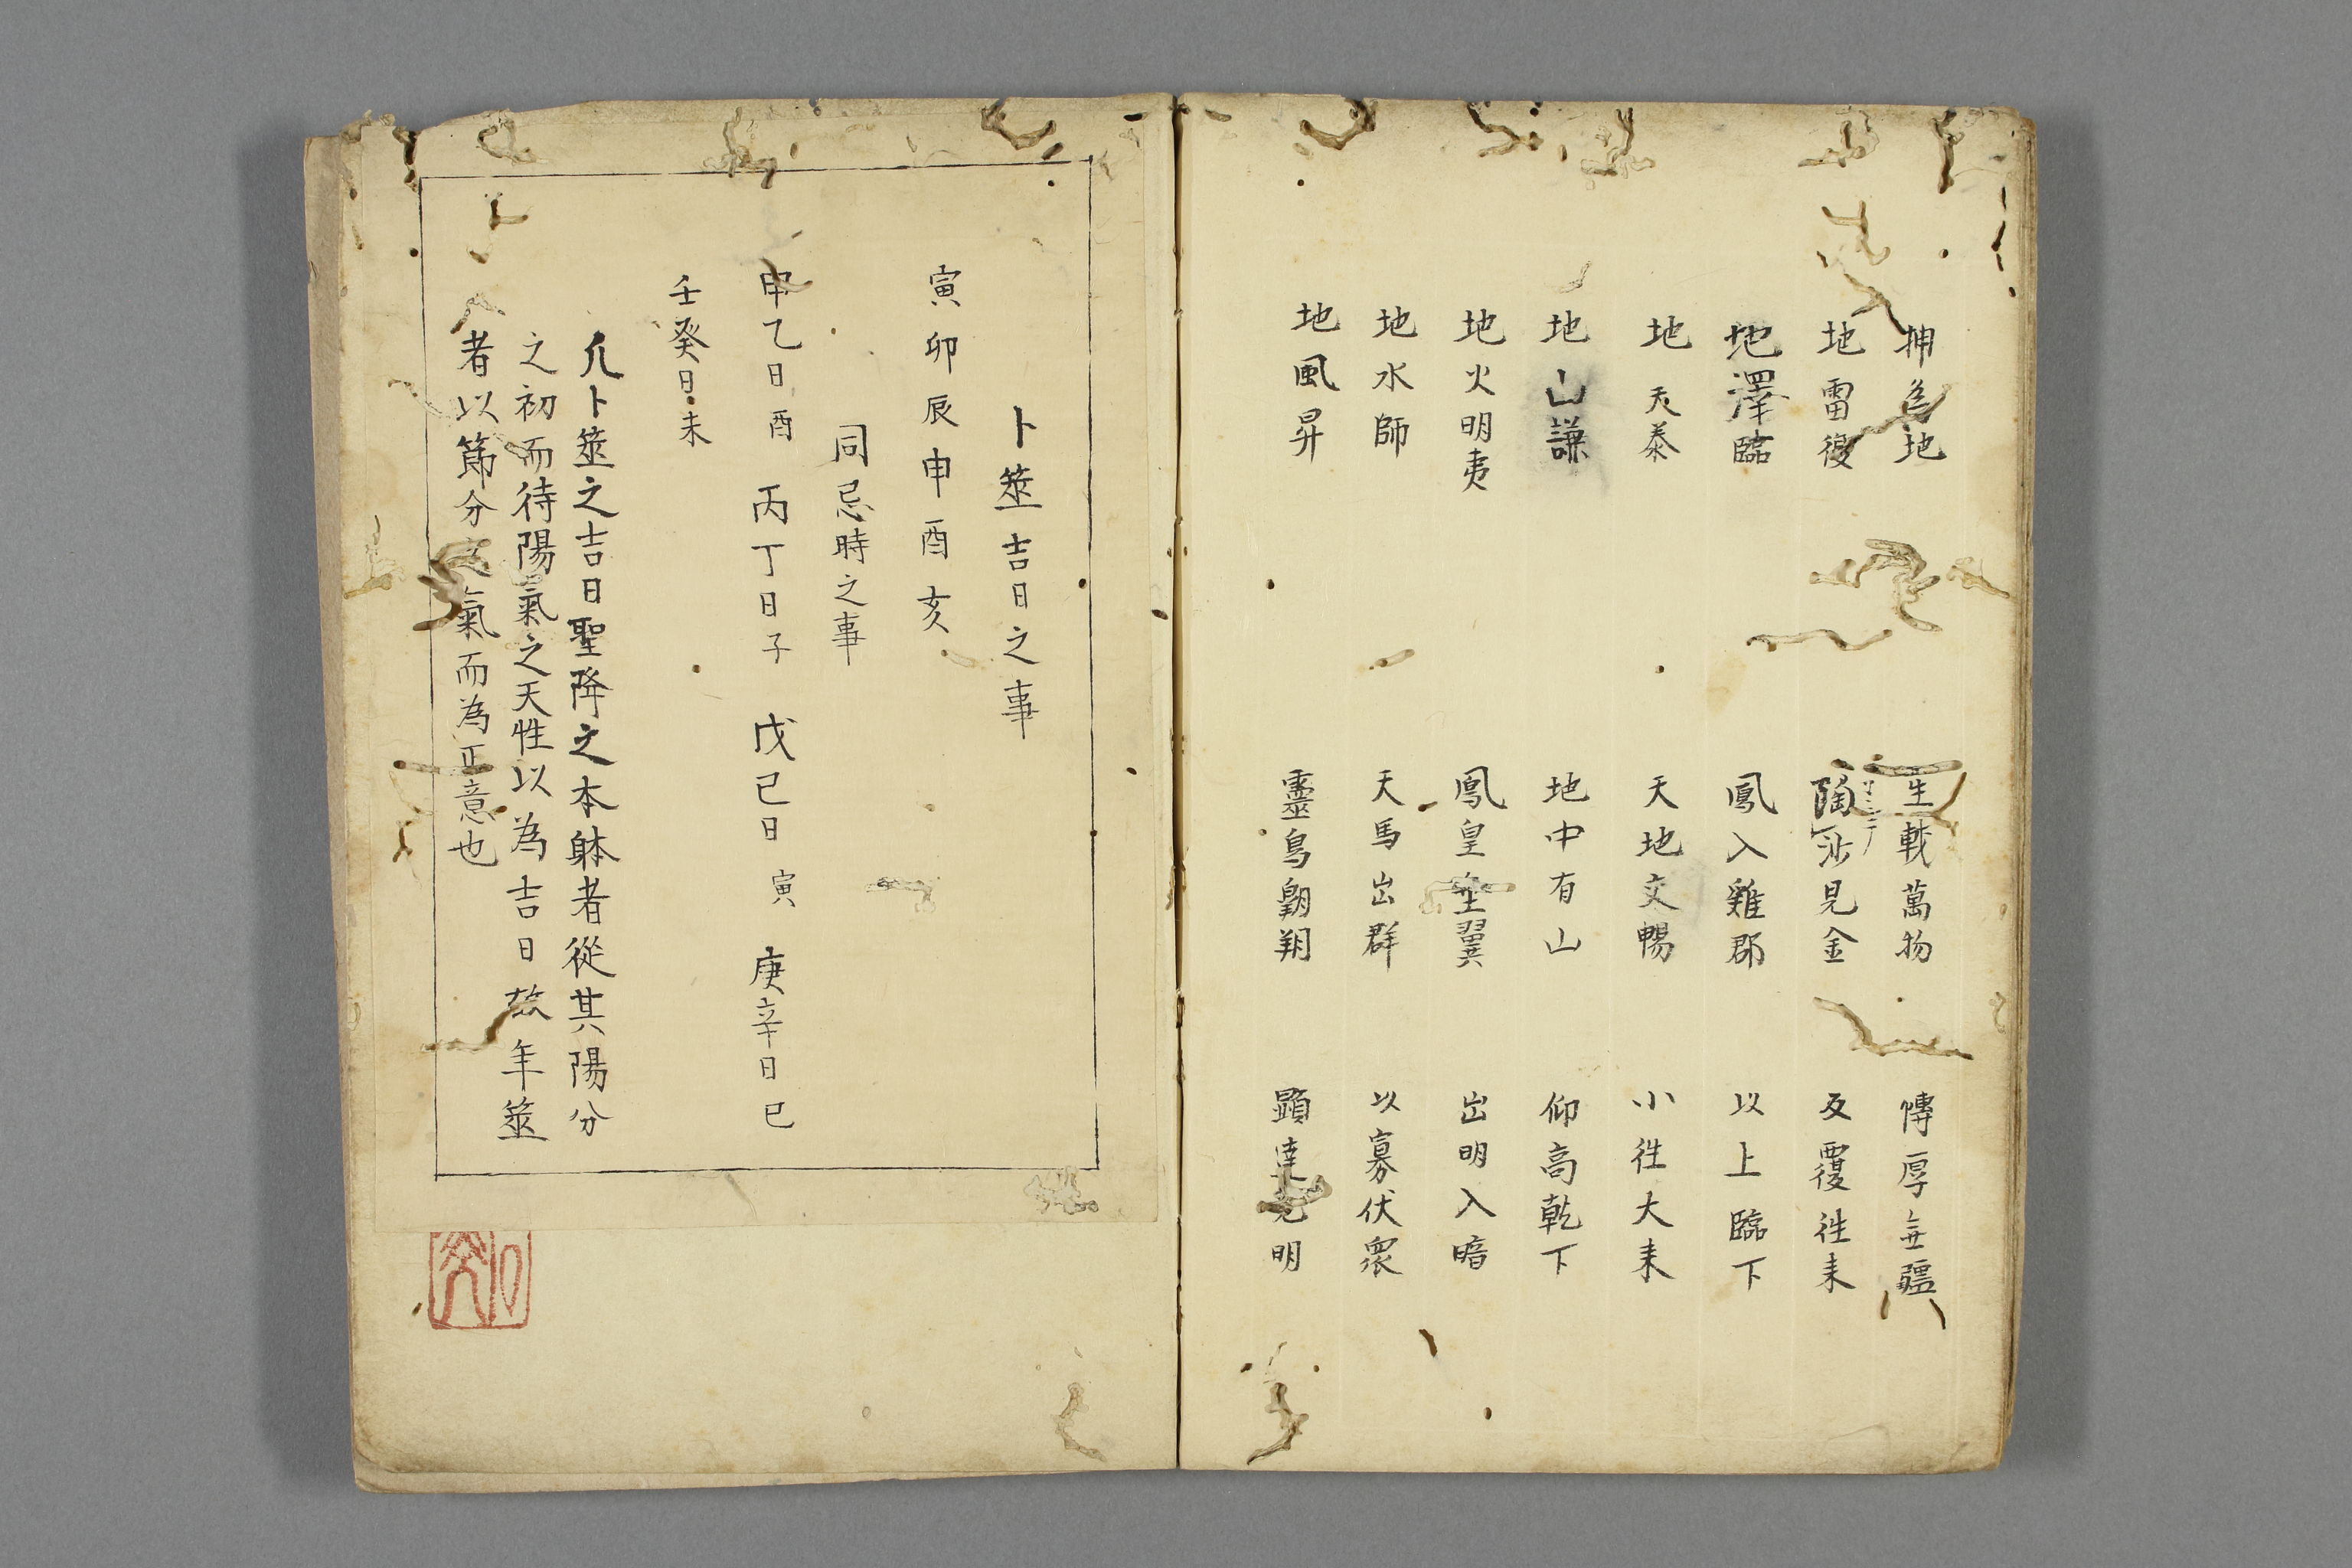 坤為地 生載萬物 博厚無疆
地雷復 陶沙見金 反覆徃来
地澤臨 鳳入雞郡 以上臨下
地天泰 天地交暢 小徃大来
地山謙 地中有山 仰高乾下
地火明夷 鳳皇垂翼 出明入暗
地水師 天馬出群 以寡伏衆
地風昇 靈鳥翺翔 顕達光明
卜筮吉日之事
寅卯辰申酉亥
同忌時之事
甲乙日酉 丙丁日子 戊己日寅 庚辛日巳
壬癸日未
凢卜筮之吉日聖降之本躰者從其陽分
之初而待陽氣之天性以為吉日故年筮
者以節分之氣而為正意也